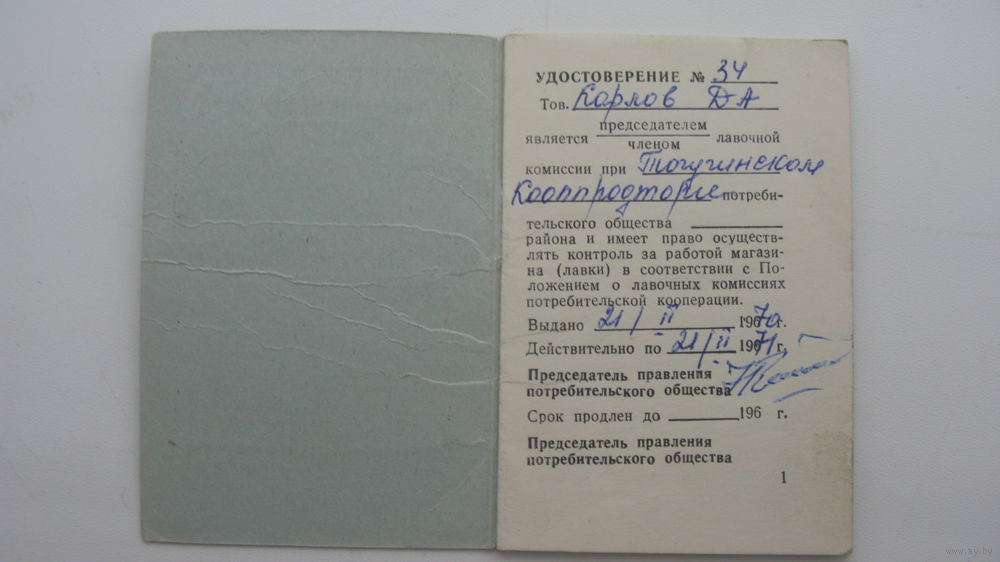 УДОСТОВЕРЕНИЕ № 34
Тов. Карлов ДА
является председателем лавочной
членом
комиссии при Тогучинском
Коопродторге потреби-
тельского общества
района и имеет право осуществ-
лять контроль за работой магази-
на (лавки) в соответствии с По-
ложением о лавочных комиссиях
потребительской кооперации.
Выдано 21/II 1970 г.
Действительно по 21/II 1971 г.
Председатель правления
потребительского общества
Срок продлен до 196 г.
Председатель правления
потребительского общества
1
www.ay.by